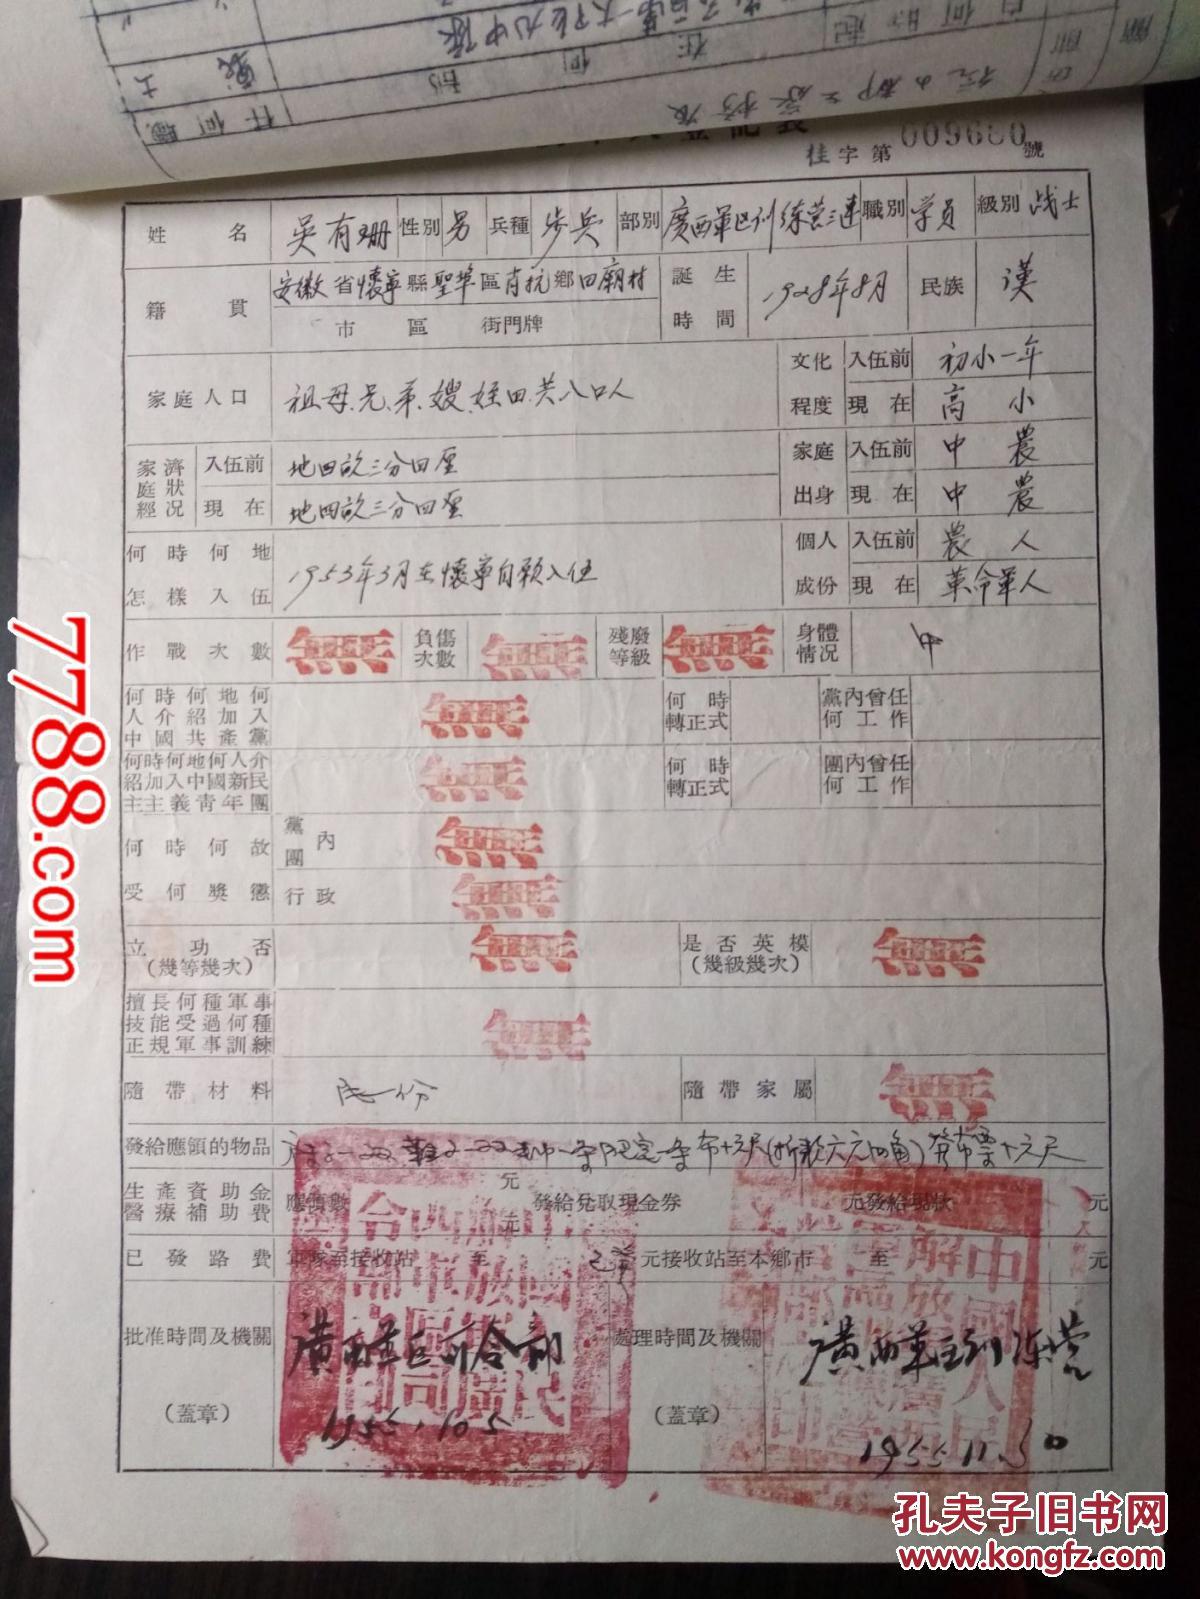 桂字第 009680 號
姓名 吴有珊 性别 男 兵種 步兵 部别 廣西軍区训练营三連 職别 学员 級别 战士
籍貫 安徽省懷寧縣聖埠區肖坑鄉田廟村
市 區 街門牌
誕生時間 1928年8月 民族 漢
家庭人口 祖母.兄.弟.嫂.姪田.共八口人
文化程度 入伍前 初小一年
現在 高小
家庭經濟狀况 入伍前 地四畝三分四厘
現在 地四畝三分四厘
家庭出身 入伍前 中農
現在 中農
何時何地怎樣入伍 1953年3月在懷寧自願入伍
個人成份 入伍前 農人
現在 革命軍人
作戰次數 無 負傷次數 無 殘廢等級 無 身體情况 中
何時何地何人介紹加入中國共產黨 無 何時轉正式 黨內曾任何工作
何時何地何人介紹加入中國新民主主義青年團 無 何時轉正式 團內曾任何工作
何時何故受何獎懲 黨團內 無
行政 無
立功否(幾等幾次) 無 是否英模(幾級幾次) 無
擅長何種軍事技能受過何種正規軍事訓練 無
隨帶材料 一份 隨帶家屬 無
發給應領的物品 一双 鞋子一双 一条 布十六尺(折款六元四角)发布票十六尺
生產資助金 醫療補助費 應領數 元 元 發給兑取現金券 元發給現款 元
已發路費 軍隊至接收站 至 已发 元接收站至本鄉市 至 元
批准時間及機關 廣西軍区司令部
(蓋章) 1955.10.5
處理時間及機關 廣西軍区训练营
(蓋章) 1955.11.30
7788.com
孔夫子旧书网
www.kongfz.com